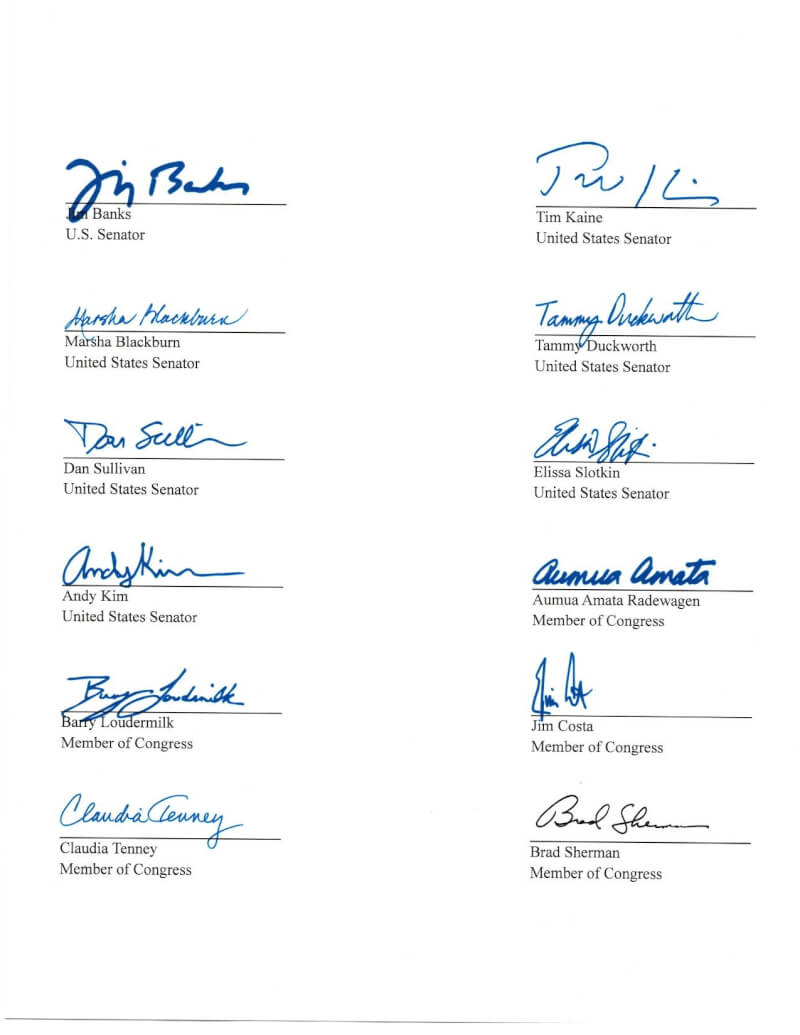 Jim Banks
Jim Banks
U.S. Senator
Tim Kaine
Tim Kaine
United States Senator
Marsha Blackburn
Marsha Blackburn
United States Senator
Tammy Duckworth
Tammy Duckworth
United States Senator
Dan Sullivan
Dan Sullivan
United States Senator
Elissa Slotkin
Elissa Slotkin
United States Senator
Andy Kim
Andy Kim
United States Senator
Aumua Amata
Aumua Amata Radewagen
Member of Congress
Barry Loudermilk
Barry Loudermilk
Member of Congress
Jim Costa
Jim Costa
Member of Congress
Claudia Tenney
Claudia Tenney
Member of Congress
Brad Sherman
Brad Sherman
Member of Congress